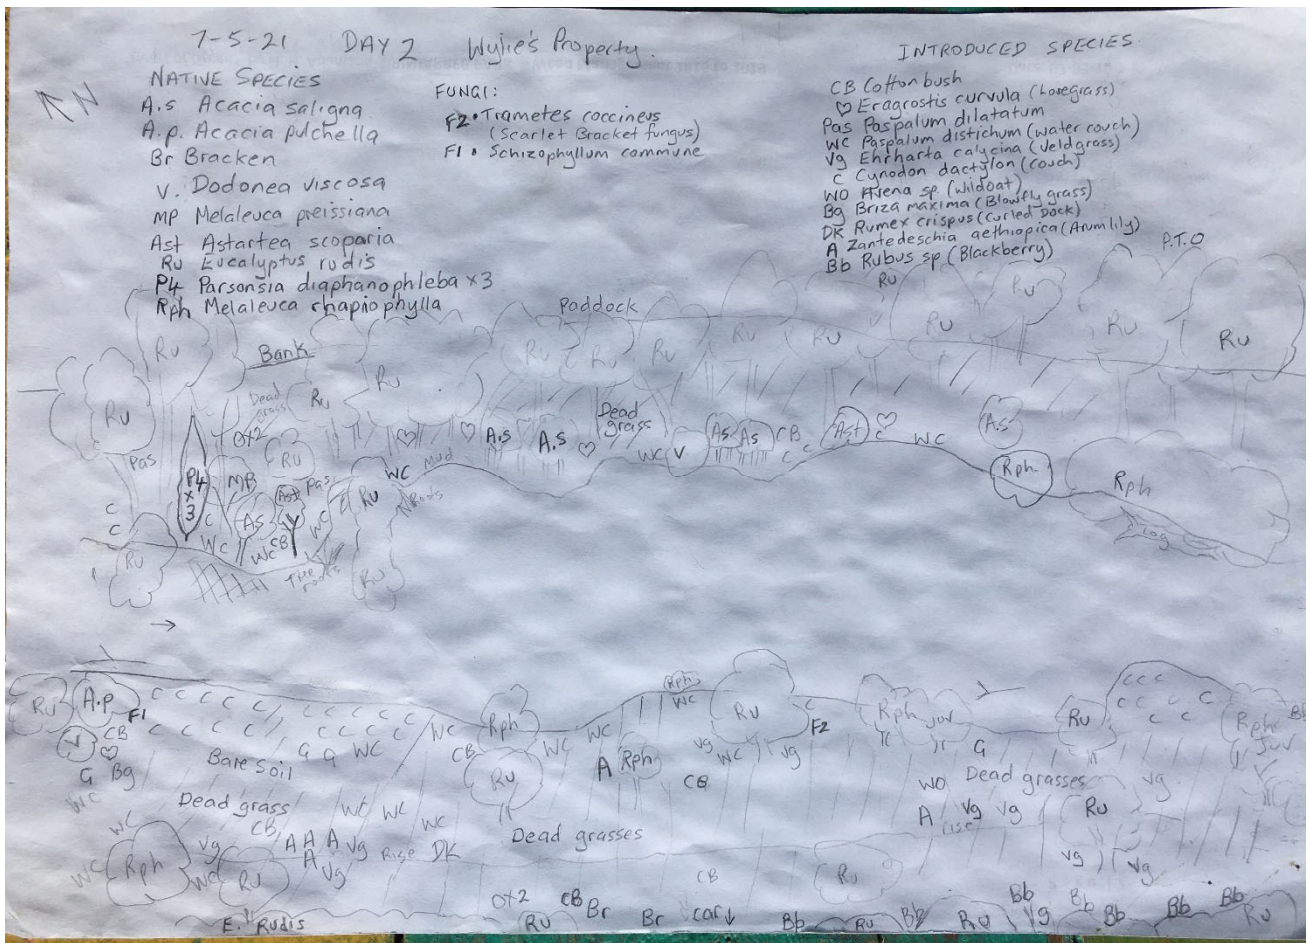 7-5-21 DAY 2 Wylie's Property.
N
NATIVE SPECIES
A.s Acacia saligna
A.p. Acacia pulchella
Br Bracken
V. Dodonea viscosa
MP Melaleuca preissiana
Ast Astartea scoparia
Ru Eucalyptus rudis
P4 Parsonsia diaphanophleba x3
Rph Melaleuca rhapiophylla
FUNGI:
F2 • Trametes coccineus
(Scarlet Bracket fungus)
F1 • Schizophyllum commune
INTRODUCED SPECIES
CB Cotton bush
♡ Eragrostis curvula (Lovegrass)
Pas Paspalum dilatatum
WC Paspalum distichum (Water couch)
Vg Ehrharta calycina (Veldgrass)
C Cynodon dactylon (Couch)
WO Avena sp. (Wildoat)
Bg Briza maxima (Blowfly grass)
DK Rumex crispus (Curled Dock)
A Zantedeschia aethiopica (Arum lily)
Bb Rubus sp (Blackberry)
P.T.O
Paddock Ru Ru
Ru Bank Ru Ru Ru Ru Ru Ru Ru Ru
Ru Dead grass Ru Ru
Ox2 ♡ ♡ A.s A.s ♡ Dead grass As As CB Ast ♡ c WC A.S
Pas Ru WC V C C
P4 x 3 MB Ast Pas Ru WC Mud Rph Rph
C C C As WC Roots
Ru WC WC CB Tree roots Ru log
→
Ru A.p F1 C C C C C C C C C C C C WC Rph Rph WC Ru F2 Rph Juv Ru C C C C C C Rph Juv Bb
V CB ♡ Bare Soil G G WC CB WC WC Vg WC Vg G
G Bg Ru A Rph CB WO Dead grasses Vg
WC Dead grass WC WC WC A Vg Vg Ru
WC CB A A A Vg Rise DK Dead grasses rise
WC Rph Vg A Vg Vg Vg
WC Ru CB Ru
E. Rudis Ox2 Ru CB Br Br car↓ Bb Ru Bb Ru Bb Vg Bb Bb Bb Bb Ru